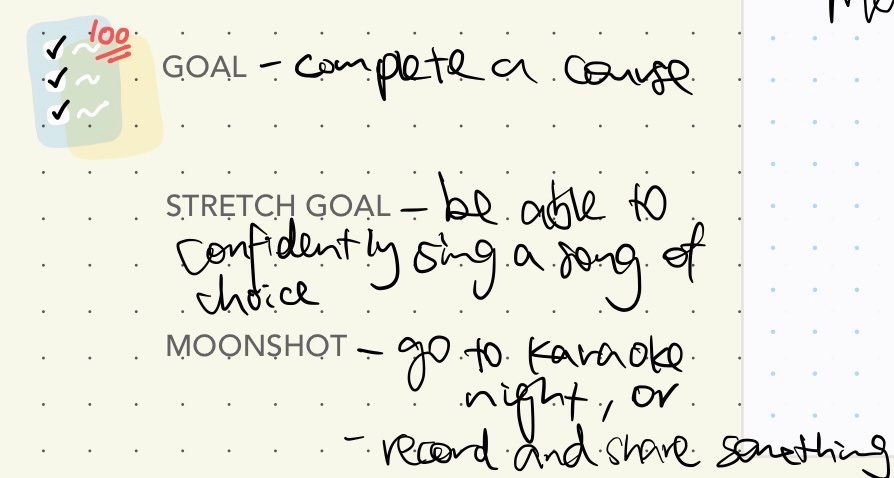 100
GOAL - complete a course
STRETCH GOAL - be able to
confidently sing a song of
choice
MOONSHOT - go to karaoke
night, or
- record and share something